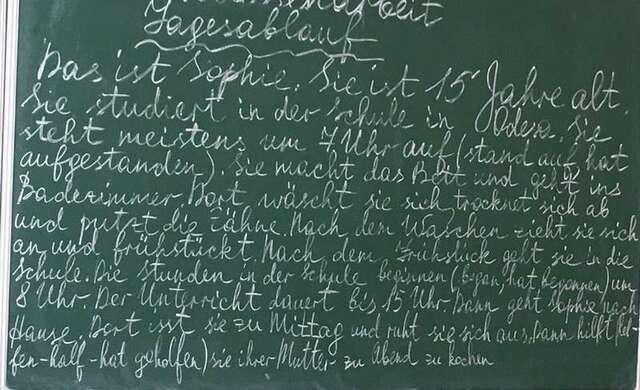 Klassenarbeit
Tagesablauf
Das ist Sophie. Sie ist 15 Jahre alt.
Sie studiert in der Schule in Odesa. Sie
steht meistens um 7 Uhr auf (stand auf, hat
aufgestanden). Sie macht das Bett und geht ins
Badezimmer. Dort wäscht sie sich, trocknet sich ab
und putzt die Zähne. Nach dem Waschen zieht sie sich
an und frühstückt. Nach dem Frühstück geht sie in die
Schule. Die Stunden in der Schule beginnen (began, hat begonnen) um
8 Uhr. Der Unterricht dauert bis 15 Uhr. Dann geht Sophie nach
Hause. Dort isst sie zu Mittag und ruht sie sich aus. Dann hilft (hel
fen-half-hat geholfen) sie ihrer Mutter zu Abend zu kochen